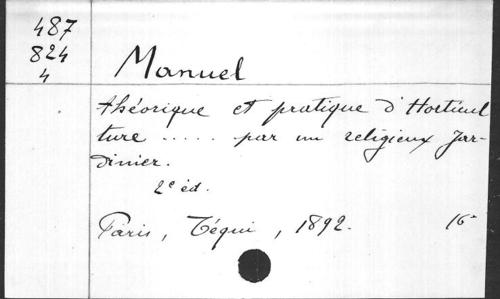 487
824
4
Manuel
théorique et pratique d'Horticul
ture ..... par un religieux Jar-
dinier.
2e éd.
Paris, Téqui, 1892. 16°